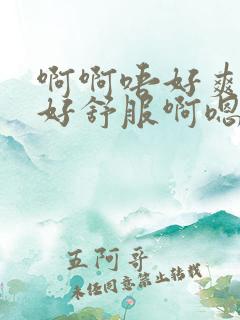 啊啊唔好爽
好舒服啊嗯
五阿哥
未经同意禁止转载